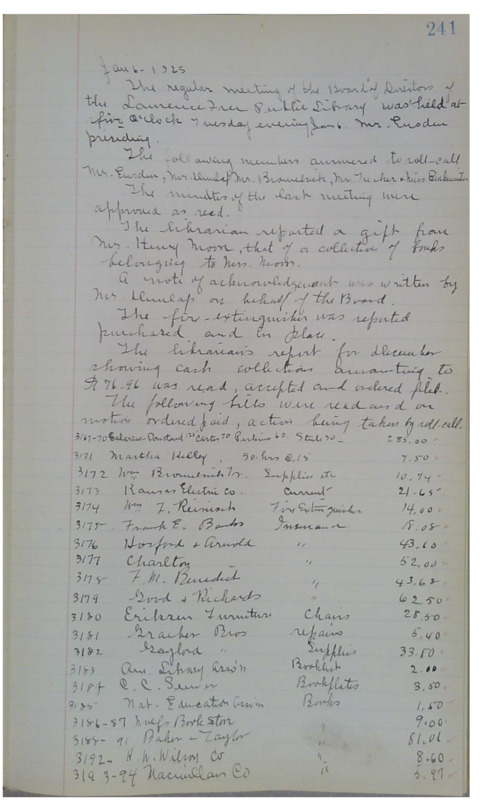 241
Jan 6 - 1925
The regular meeting of the Board of Directors of
the Lawrence Free Public Library was held at
five O'Clock Tuesday evening Jan 6. Mr. Eusden
presiding.
The following members answered to roll-call
Mr. Eusden, Mr. Dunlap Mr. Bromelsick, Mr. Tucker & Miss
The minutes of the last meeting were
approved as read.
The librarian reported a gift from
Mrs. Henry Moore, that of a collection of books
belonging to Mrs. Moore.
A note of acknowledgement was written by
Mr Dunlap on behalf of the Board.
The fire-extinguisher was reported
purchased and in place.
The librarian's report for December
showing cash collections amounting to
$76.96 was read, accepted and ordered filed.
The following bills were read and on
motion ordered paid, action being taken by roll-call.
3167-70 Salaries 285.00
3171 Martha Kelley 50 hrs @ .15 7.50
3172 Wm Bromelsick Tr. Supplies etc 10.74
3173 Kansas Electric Co. Current 21.65
3174 Wm F. Reinisch Fire Extinguisher 14.00
3175 Frank E. Banks Insurance 18.08
3176 Hosford & Arnold " 43.60
3177 Charlton " 52.00
3178 F. M. Benedict " 43.62
3179 Good & Richards " 62.50
3180 Eriksen Furniture Chairs 28.50
3181 Graeber Bros repairs 5.40
3182 Gaylord " Supplies 33.80
3183 Am. Library Ass'n Booklist 2.00
3184 C. C. Bookplates 3.50
3185 Nat. Education Assn Books 1.50
3186-87 Book Store 9.00
3188-91 Baker & Taylor " 81.01
3192- H. W. Wilson Co " 8.60
3193-94 Macmillan Co " 5.97